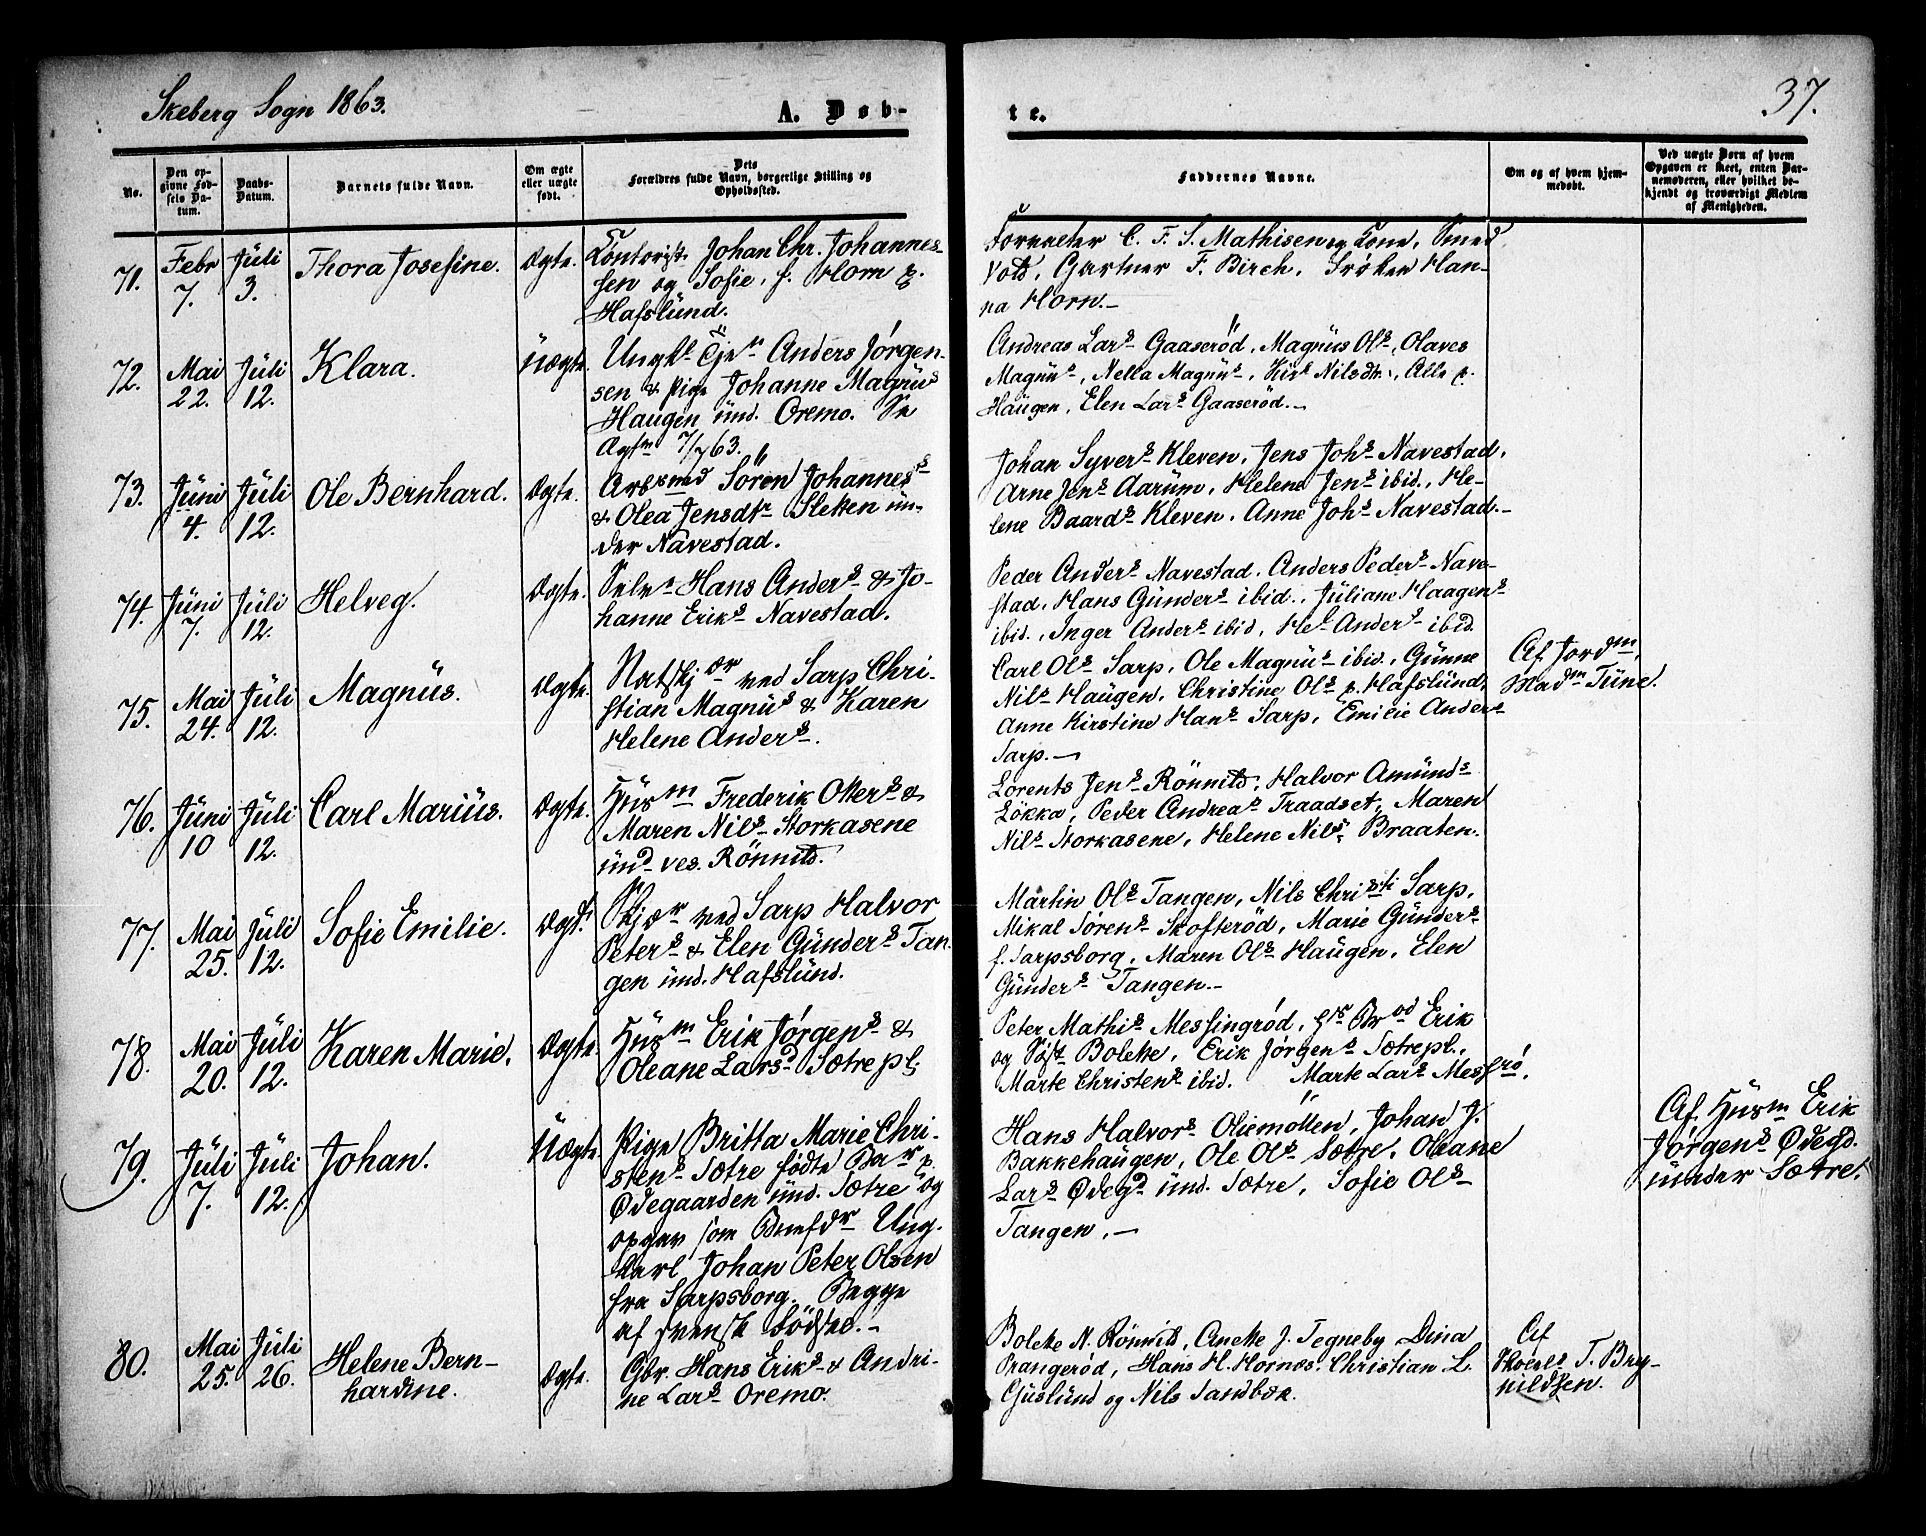 Skeberg Sogn 1863.
A. Døb-
te.
37.
No.
Den op-
givne Fød-
sels Da-
tum.
Daabs-
Datum.
Barnets fulde Navn.
Om ægte
eller uægte
født.
Dets
Forældres fulde Navn, borgerlige Stilling og
Opholdssted.
Faddernes Navne.
Om og af hvem hjem-
medøbt.
Ved uægte Born af hvem
Opgaven er skeet, enten Bar-
nemoderen, eller hvilket be-
kjendt og troværdigt Medlem
af Menigheden.
71.
Febr
7.
Júli
3.
Thora Josefine.
Ægte.
Kontorist Johan Chr. Johannes-
sen og Sofie, f. Horn p.
Hafslúnd.
Forvalter C. F. S. Mathisen og Kone, Smed
Vold, Gartner F. Birch, Frøken Han-
na Horn.-
72.
Mai
22.
Júli
12.
Klara.
Úægte.
Ungk Eje Anders Jørgen-
sen & Pige Johanne Magnús
Haugen únd. Oremo. Se
Ægtm 7/7 63.
Andreas Lars Gaaserød, Magnús Ols, Olaves
Magnús, Nella Magnús, Kirs Nilsdtr., Alle p.
Haúgen, Elen Lars Gaaserød.-
73.
Júni
4.
Júli
12.
Ole Bernhard.
Ægte.
Arbsmd Søren Johannes
& Olea Jensdtr Sletten ún-
der Navestad.
Johan Syvers Kleven, Jens Johs Navestad,
Arne Jens Aarúm, Helene Jens ibid., He-
lene Baards Kleven, Anne Johs Navestad.-
74.
Júni
7.
Júli
12.
Helveg.
Ægte.
Selve Hans Anders & Jo-
hanne Eriks Navestad.
Peder Anders Navestad, Anders Peders Nave-
stad, Hans Gúnders ibid., Júliane Haagens
ibid., Inger Anders ibid, Hel Anders ibid.
75.
Mai
24.
Júli
12.
Magnús.
Ægte.
Natskjær ved Sarp Chri-
stian Magnús & Karen
Helene Anders.
Carl Ols Sarp, Ole Magnús ibid., Gúnne
Nils Haúgen, Christine Ols p. Hafslúnd,
Anne Kirstine Hans Sarp, Emilie Anders
Sarp.-
Af Jordm,
Madm Túne.
76.
Júni
10
Júli
12.
Carl Mariús.
Ægte.
Húsm Frederik Otters &
Maren Nils Storkasene
únd ves. Rönnild.
Lorents Jens Rönnild, Halvor Amúnds
Løkka, Peder Andreas Traadset, Maren
Nils Storkasene, Helene Nils Braaten.
77.
Mai
25.
Júli
12.
Sofie Emilie.
Ægt.
Skjær ved Sarp Halvor
Peters & Elen Gúnders Tan-
gen únd. Hafslúnd.
Martin Ols Tangen, Nils Christi Sarp,
Mikal Sørens Skofterød, Marie Gúnders
f. Sarpsborg, Maren Ols Haúgen, Elen
Gúnders Tangen.-
78.
Mai
20.
Júli
12.
Karen Marie.
Ægte.
Húsm Erik Jørgens &
Oleane Larsd Sætrepl.
Peter Mathis Messingrød, Erik
og Bolette, Erik Jørgens Sætrepl.,
Marte Christens ibid. Marte Lars Messrø.
79.
Júli
7.
Júli
12.
Johan.
Úægte.
Pige Britta Marie Chri-
stens Sætre fødte Bar p.
Ødegaarden únd. Sætre og
opgav som Barnefdr Ung-
karl Johan Peter Olsen
fra Sarpsborg. Begge
af svensk Fødsel.-
Hans Halvors Oliemøllen, Johan J.
Bakkehaúgen, Ole Ols Sætre, Oleane
Lars Ødegd únd. Sætre, Sofie Ols
Tangen.-
Af Húsm Erik
Jørgens Ødegd.
únder Sætre.
80.
Mai
25.
Júli
26.
Helene Bern-
hardine.
Ægte.
Gbr. Hans Eriks & Andri-
ne Lars Oremo.
Bolette N. Rönnild, Anette J. Tegneby Dina
Prangerød, Hans H. Hornæs, Christian L.
Gúslúnd og Nils Sandbæk.
Af
T. Bry-
nildsen.